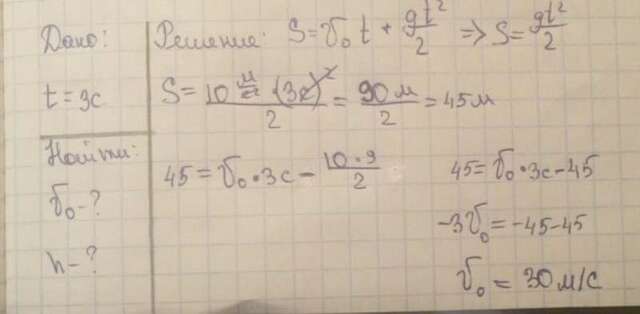 Дано:
t = 3с
Найти:
v₀ - ?
h - ?
Решение: S = v₀ t + gt²/2 => S = gt²/2
S = 10 м/с² · (3с)²/2 = 90 м/2 = 45 м
45 = v₀ · 3с - 10·9/2
45 = v₀ · 3с - 45
-3v₀ = -45 - 45
v₀ = 30 м/с